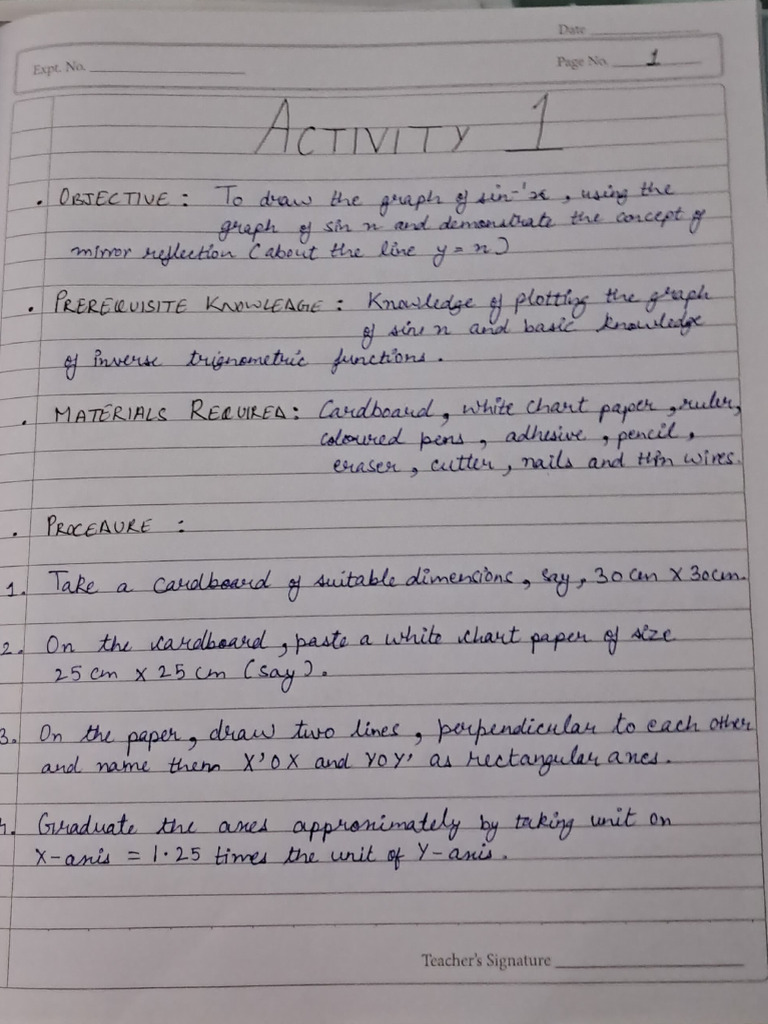 Date
Expt. No.
Page No. 1
ACTIVITY 1
• OBJECTIVE : To draw the graph of sin⁻¹x, using the
graph of sin x and demonstrate the concept of
mirror reflection (about the line y = x)
• PREREQUISITE KNOWLEDGE : Knowledge of plotting the graph
of sine x and basic knowledge
of inverse trignometric functions.
• MATERIALS REQUIRED : Cardboard, white chart paper, ruler,
coloured pens, adhesive, pencil,
eraser, cutter, nails and thin wires.
• PROCEDURE :
1. Take a cardboard of suitable dimensions, say, 30 cm X 30cm.
2. On the cardboard, paste a white chart paper of size
25 cm x 25 cm (say).
3. On the paper, draw two lines, perpendicular to each other
and name them X'OX and YOY' as rectangular axes.
4. Graduate the axes approximately by taking unit on
X-axis = 1.25 times the unit of Y-axis.
Teacher's Signature